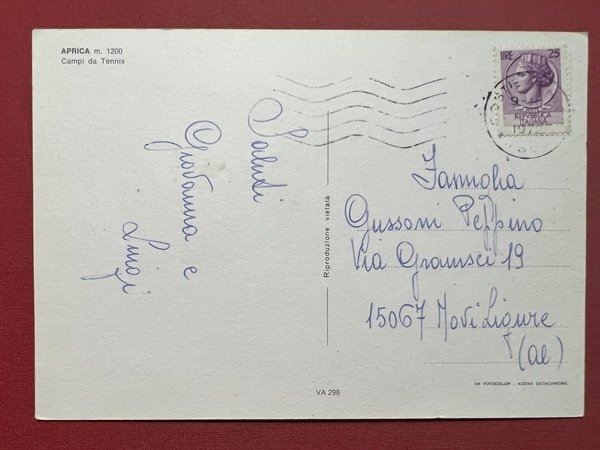 APRICA m. 1200
Campi da Tennis
Saluti
Giovanna e
Luigi
Riproduzione vietata
VA 298
LIRE 25
REPUBBLICA
ITALIANA
Famiglia
Gussoni Peppino
Via Gramsci 19
15067 Novi Ligure
(al)
DA FOTOCOLOR - KODAK EKTACHROME